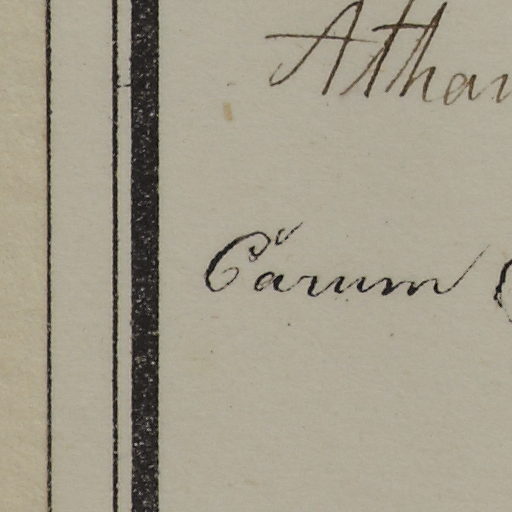 Athan
Cărum